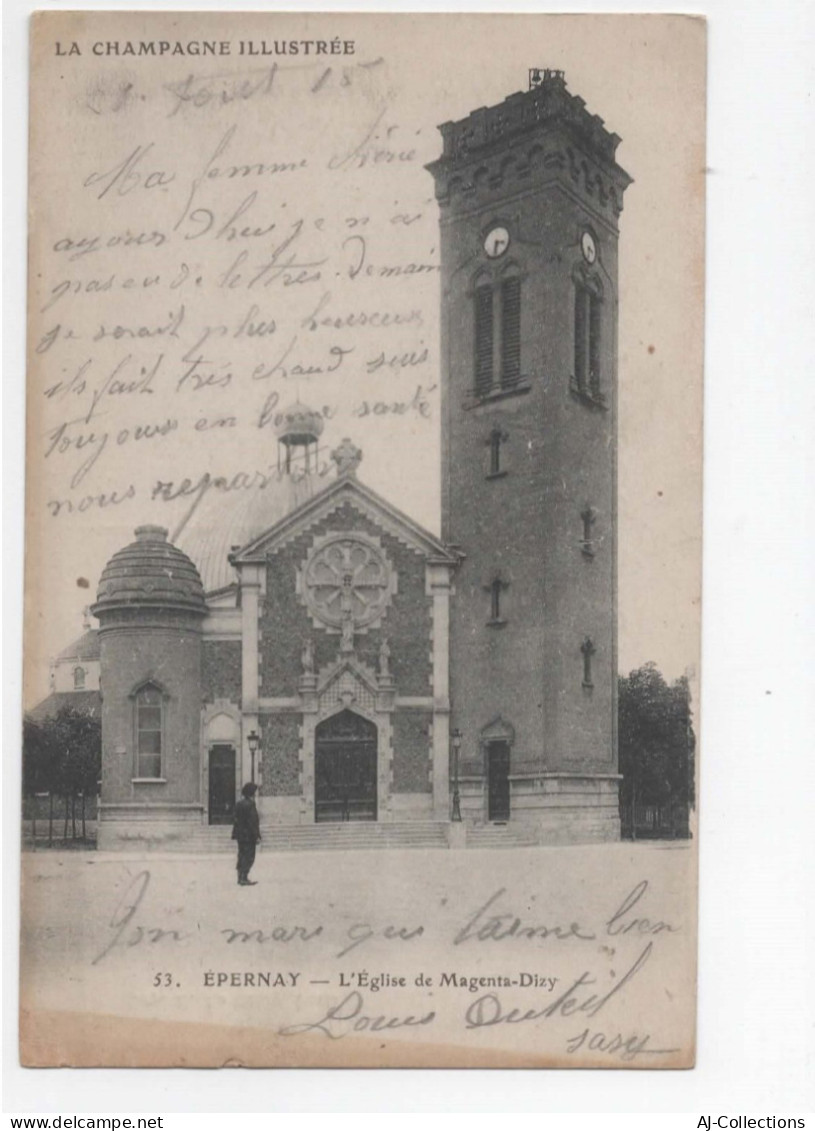 LA CHAMPAGNE ILLUSTRÉE
15
Ma femme chérie
ayourdhui je n'ai
pas eu de lettres. demain
je serait plus heureux
ils fait trés chaud suis
toujours en bonne santé
nous reparton
Ton mari qui t'aime bien
53. ÉPERNAY — L'Église de Magenta-Dizy
Louis
AJ-Collections